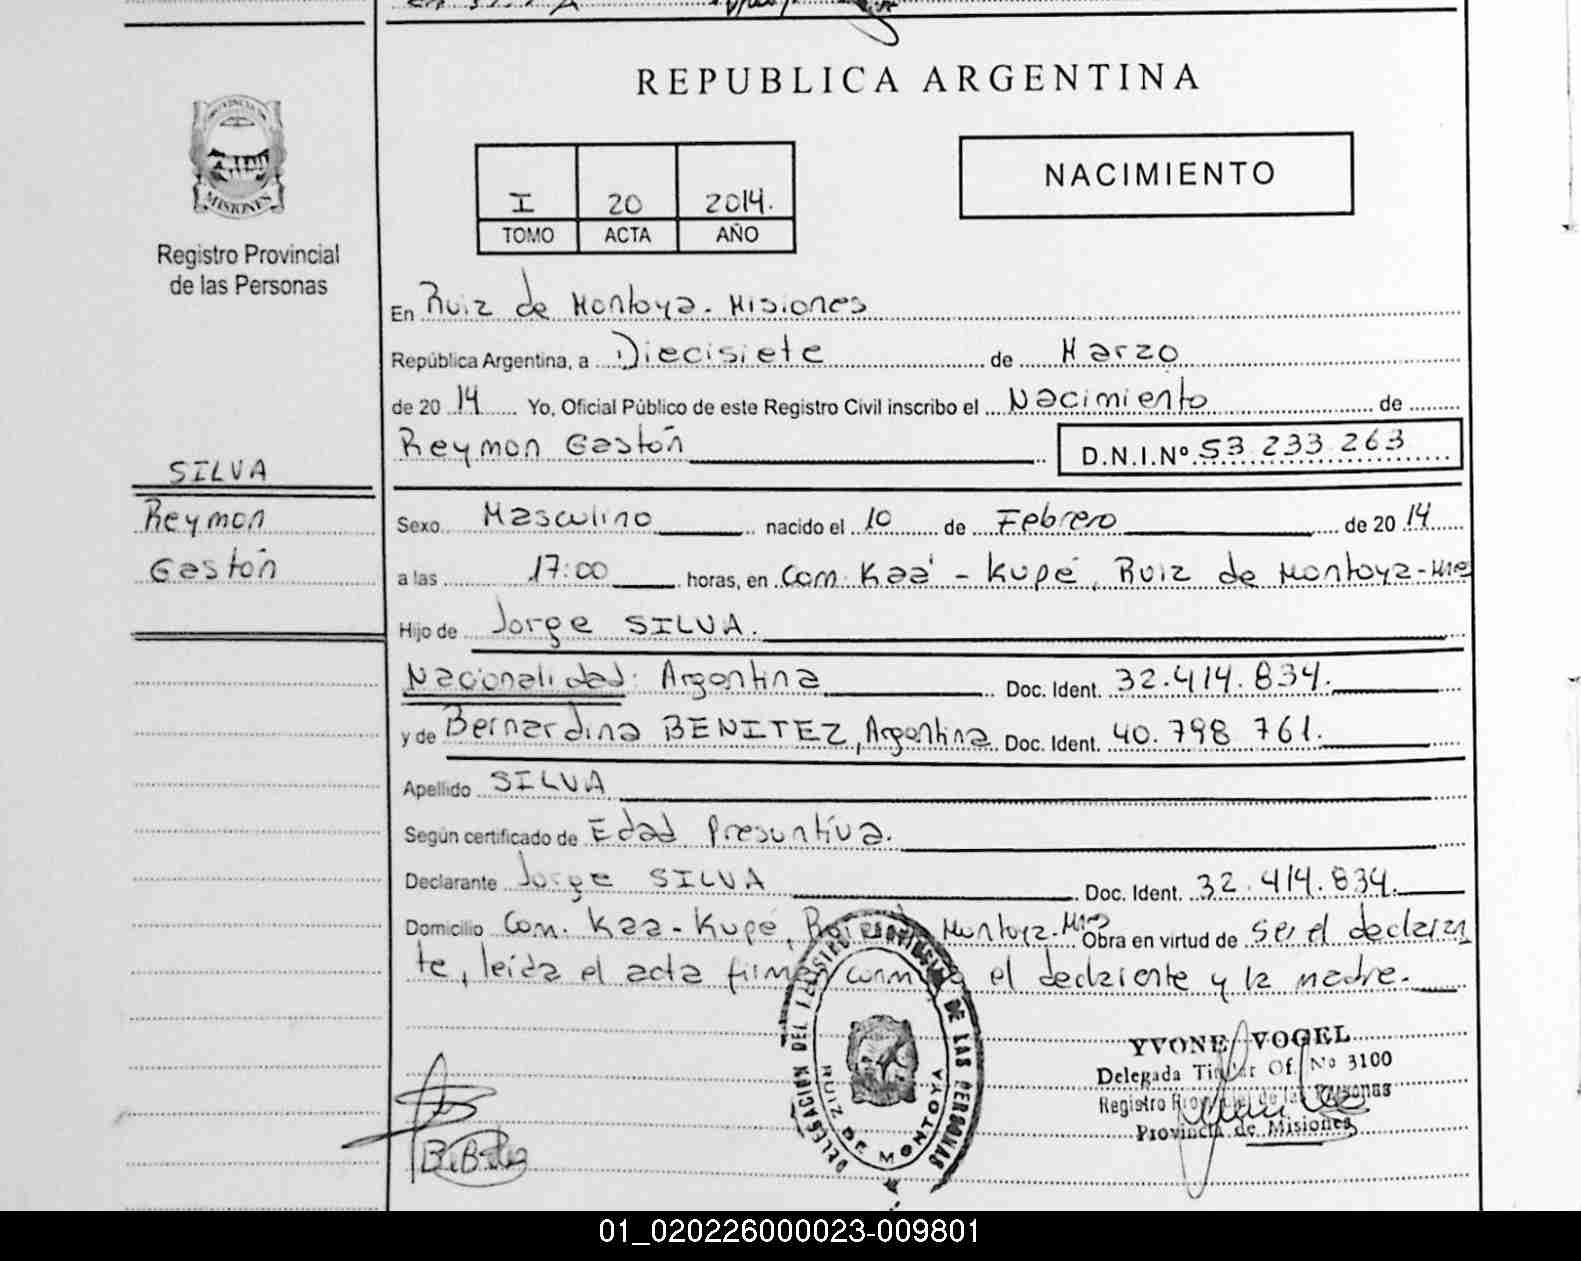 REPUBLICA ARGENTINA
PROVINCIA DE
MISIONES
Registro Provincial
de las Personas
I 20 2014.
TOMO ACTA AÑO
NACIMIENTO
En Ruiz de Montoya. Misiones
República Argentina, a Diecisiete de Marzo
de 20 14 Yo, Oficial Público de este Registro Civil inscribo el Nacimiento de
Reymon Gastón D.N.I.Nº 53 233 263
SILVA
Reymon
Gastón
Sexo Masculino nacido el 10 de Febrero de 20 14
a las 17:00 horas, en Com. Kaá - Kupé, Ruiz de Montoya-Mnes
Hijo de Jorge SILVA.
Nacionalidad: Argentina Doc. Ident. 32.414.834.
y de Bernardina BENITEZ, Argentina Doc. Ident. 40.798 761.
Apellido SILVA
Según certificado de Edad Presuntiva.
Declarante Jorge SILVA Doc. Ident. 32.414.834.
Domicilio Com. Kaa-Kupé, Ruiz de Montoya-Mnes Obra en virtud de ser el declaran
te, leída el acta firman conmigo el declarente y la madre.
DELEGACIÓN DEL REGISTRO PROVINCIAL DE LAS PERSONAS
RUIZ DE MONTOYA
YVONE VOGEL
Delegada Titular Of. Nº 3100
Registro Provincial de las Personas
Provincia de Misiones
01_020226000023-009801